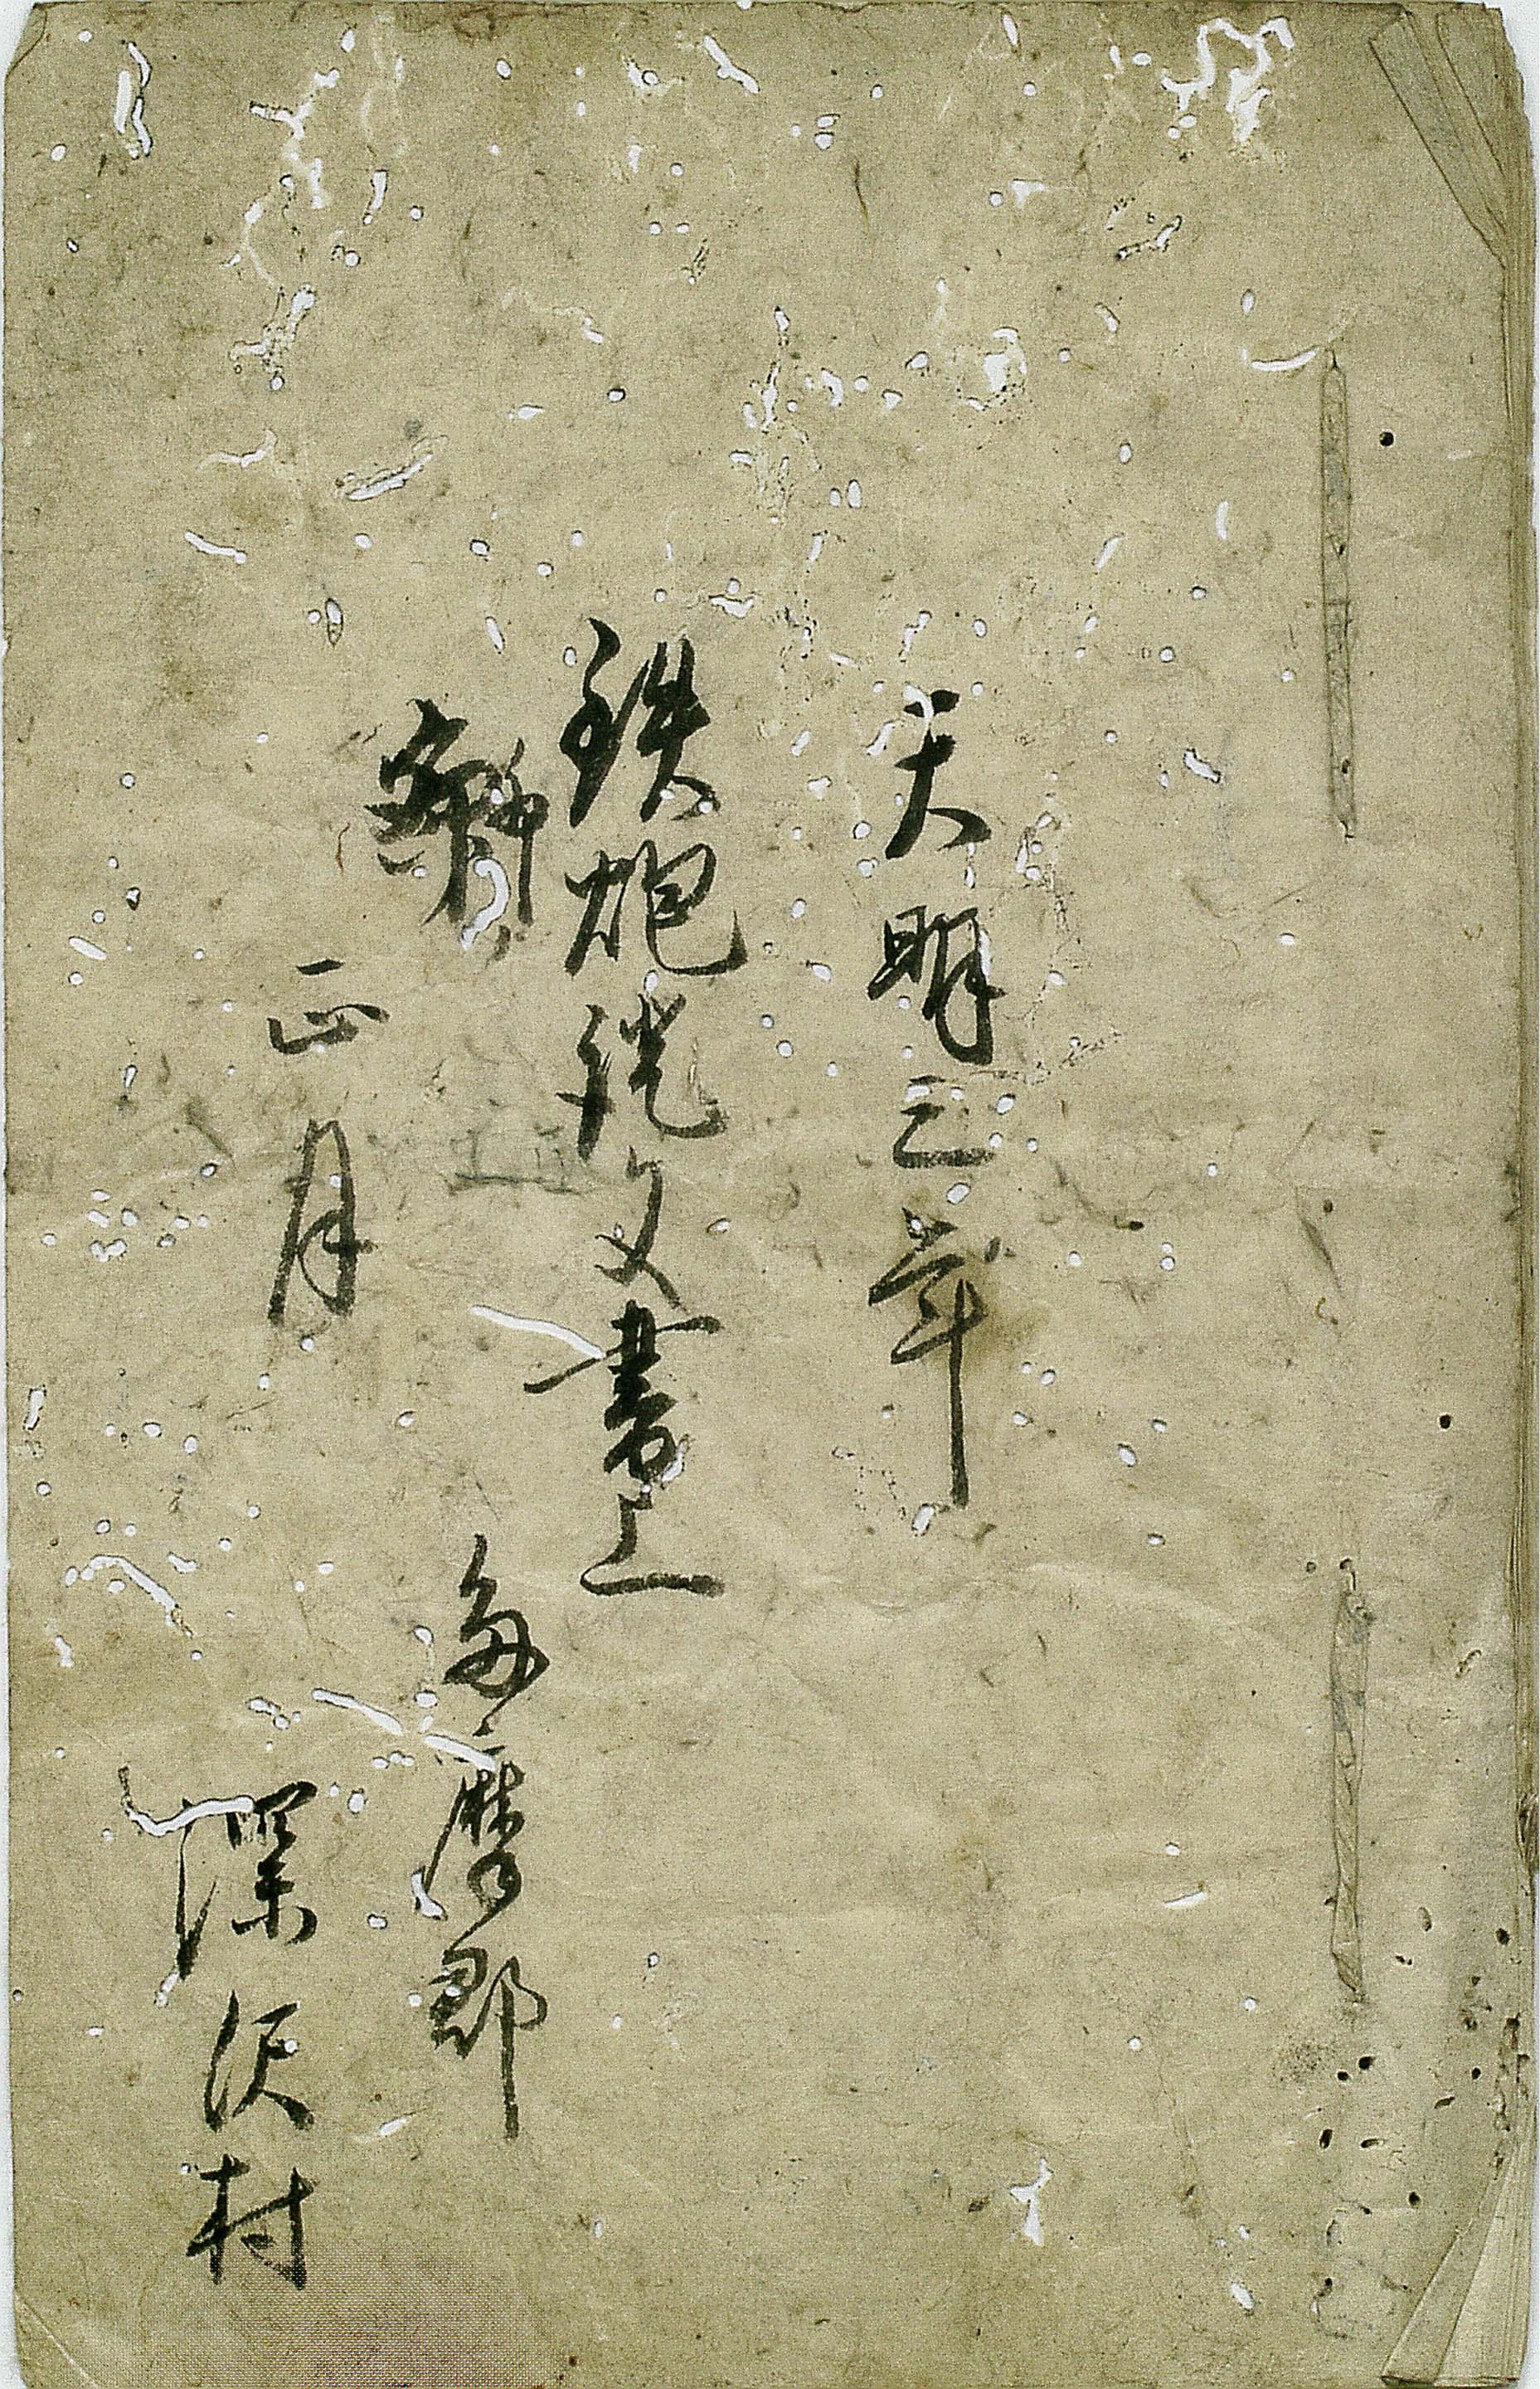 天明三年
鉄炮証文書上
正月
多摩郡
深沢村